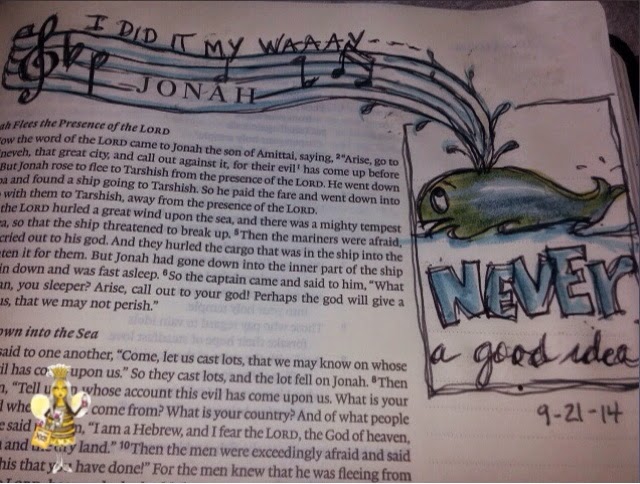 I DID IT MY WAAAY----
JONAH
ah Flees the Presence of the LORD
ow the word of the LORD came to Jonah the son of Amittai, saying, 2"Arise, go to
neveh, that great city, and call out against it, for their evil1 has come up before
But Jonah rose to flee to Tarshish from the presence of the LORD. He went down
pa and found a ship going to Tarshish. So he paid the fare and went down into
with them to Tarshish, away from the presence of the LORD.
the LORD hurled a great wind upon the sea, and there was a mighty tempest
ea, so that the ship threatened to break up. 5Then the mariners were afraid,
cried out to his god. And they hurled the cargo that was in the ship into the
ten it for them. But Jonah had gone down into the inner part of the ship
in down and was fast asleep. 6So the captain came and said to him, "What
an, you sleeper? Arise, call out to your god! Perhaps the god will give a
us, that we may not perish."
own into the Sea
said to one another, "Come, let us cast lots, that we may know on whose
il has co upon us." So they cast lots, and the lot fell on Jonah. 8Then
m, "Tell u whose account this evil has come upon us. What is your
d whe come from? What is your country? And of what people
e said n, "I am a Hebrew, and I fear the LORD, the God of heaven,
a and dry land." 10Then the men were exceedingly afraid and said
his that you have done!" For the men knew that he was fleeing from
NEVER
a good idea
9-21-14